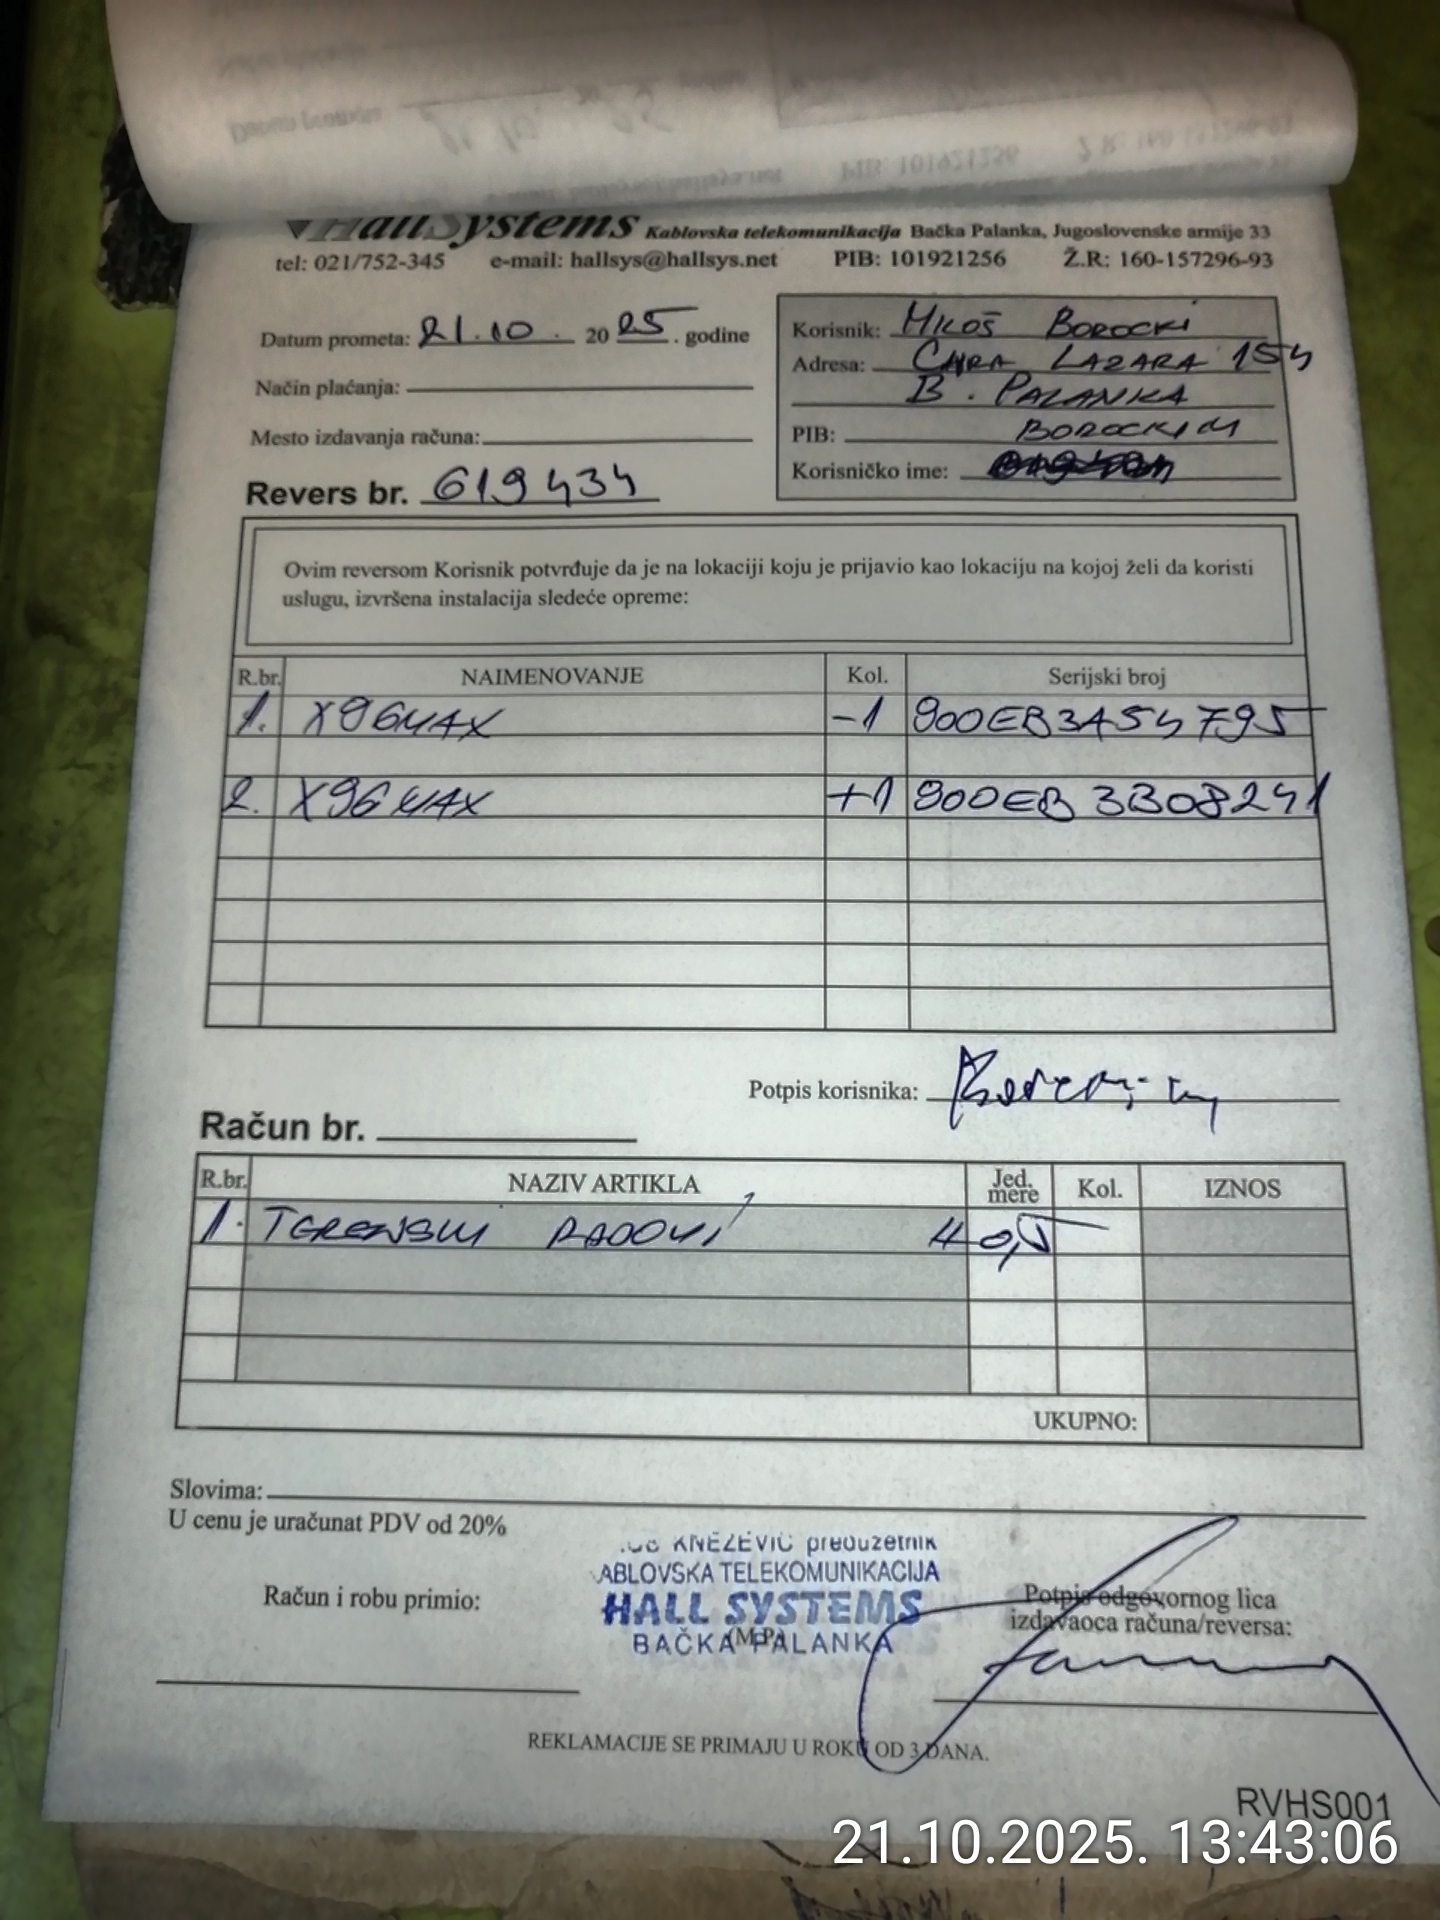 HallSystems Kablovska telekomunikacija Bačka Palanka, Jugoslovenske armije 33
tel: 021/752-345 e-mail: hallsys@hallsys.net PIB: 101921256 Ž.R: 160-157296-93
Datum prometa: 21.10. 2025. godine
Način plaćanja:
Mesto izdavanja računa:
Revers br. 619434
Korisnik: MILOŠ BOROCKI
Adresa: CARA LAZARA 154
B. PALANKA
PIB: BOROCKIM
Korisničko ime:
Ovim reversom Korisnik potvrđuje da je na lokaciji koju je prijavio kao lokaciju na kojoj želi da koristi
uslugu, izvršena instalacija sledeće opreme:
R.br. NAIMENOVANJE Kol. Serijski broj
1. X96MAX -1 900EB3A54795
2. X96MAX +1 900EB3308241
Potpis korisnika:
Račun br.
R.br. NAZIV ARTIKLA Jed. mere Kol. IZNOS
1. TERENSKI RADOVI 0,5
UKUPNO:
Slovima:
U cenu je uračunat PDV od 20%
KNEŽEVIĆ preduzetnik
ABLOVSKA TELEKOMUNIKACIJA
HALL SYSTEMS
BAČKA PALANKA
(M.P.)
Račun i robu primio:
Potpis odgovornog lica
izdavaoca računa/reversa:
REKLAMACIJE SE PRIMAJU U ROKU OD 3 DANA.
RVHS001
21.10.2025. 13:43:06